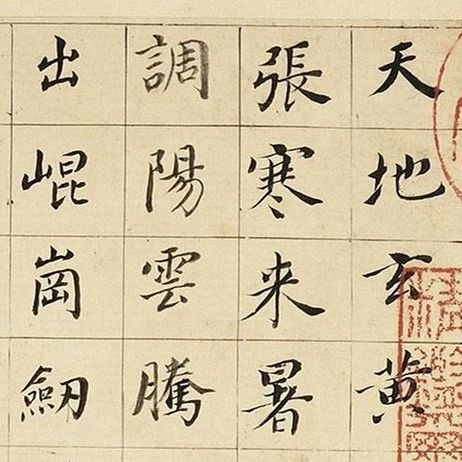 天地玄黄
張寒来暑
調陽雲騰
出崐崗劒